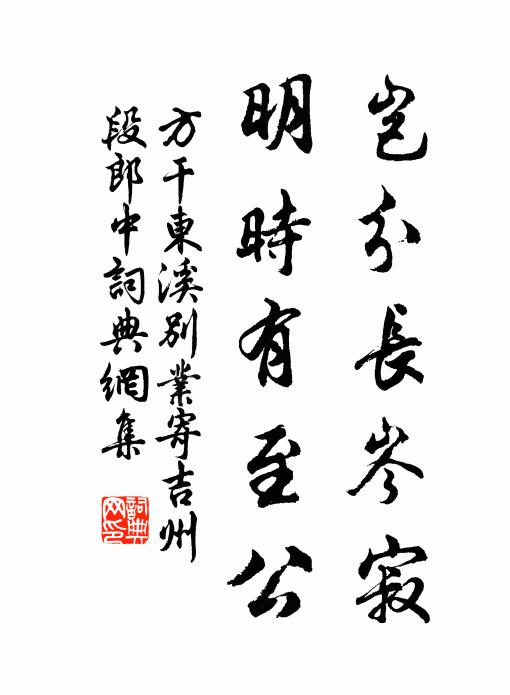 豈分長岑寂
明時有至公
方干東溪別業寄吉州
段郎中詞典網集
詞典
网印